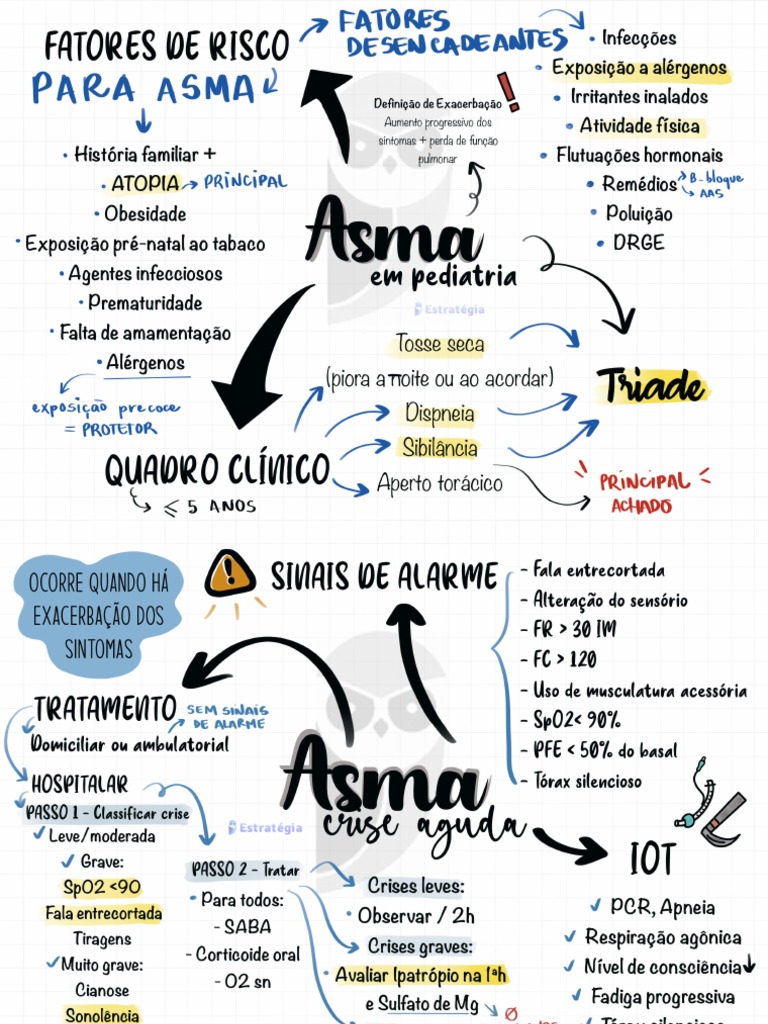 FATORES DE RISCO
PARA ASMA
FATORES
DESENCADEANTES
• Infecções
• Exposição a alérgenos
• Irritantes inalados
• Atividade física
• Flutuações hormonais
• Remédios
B-bloque
AAS
• Poluição
• DRGE
Definição de Exacerbação
Aumento progressivo dos
sintomas + perda de função
pulmonar
• História familiar +
• ATOPIA
PRINCIPAL
• Obesidade
• Exposição pré-natal ao tabaco
• Agentes infecciosos
• Prematuridade
• Falta de amamentação
• Alérgenos
exposição precoce
= PROTETOR
Asma
em pediatria
Estratégia
Tosse seca
(piora a noite ou ao acordar)
Dispneia
Sibilância
Aperto torácico
Triade
PRINCIPAL
ACHADO
QUADRO CLÍNICO
≤ 5 ANOS
OCORRE QUANDO HÁ
EXACERBAÇÃO DOS
SINTOMAS
SINAIS DE ALARME
- Fala entrecortada
- Alteração do sensório
- FR > 30 IM
- FC > 120
- Uso de musculatura acessória
- SpO2< 90%
- PFE < 50% do basal
- Tórax silencioso
TRATAMENTO
SEM SINAIS
DE ALARME
Domiciliar ou ambulatorial
HOSPITALAR
PASSO 1 - Classificar crise
Leve/moderada
Grave:
SpO2 <90
Fala entrecortada
Tiragens
Muito grave:
Cianose
Sonolência
Asma
crise aguda
Estratégia
PASSO 2 - Tratar
• Para todos:
- SABA
- Corticoide oral
- O2 sn
Crises leves:
• Observar / 2h
Crises graves:
• Avaliar Ipatrópio na 1ªh
e Sulfato de Mg
IOT
PCR, Apneia
Respiração agônica
Nível de consciência
Fadiga progressiva
Tórax silencioso